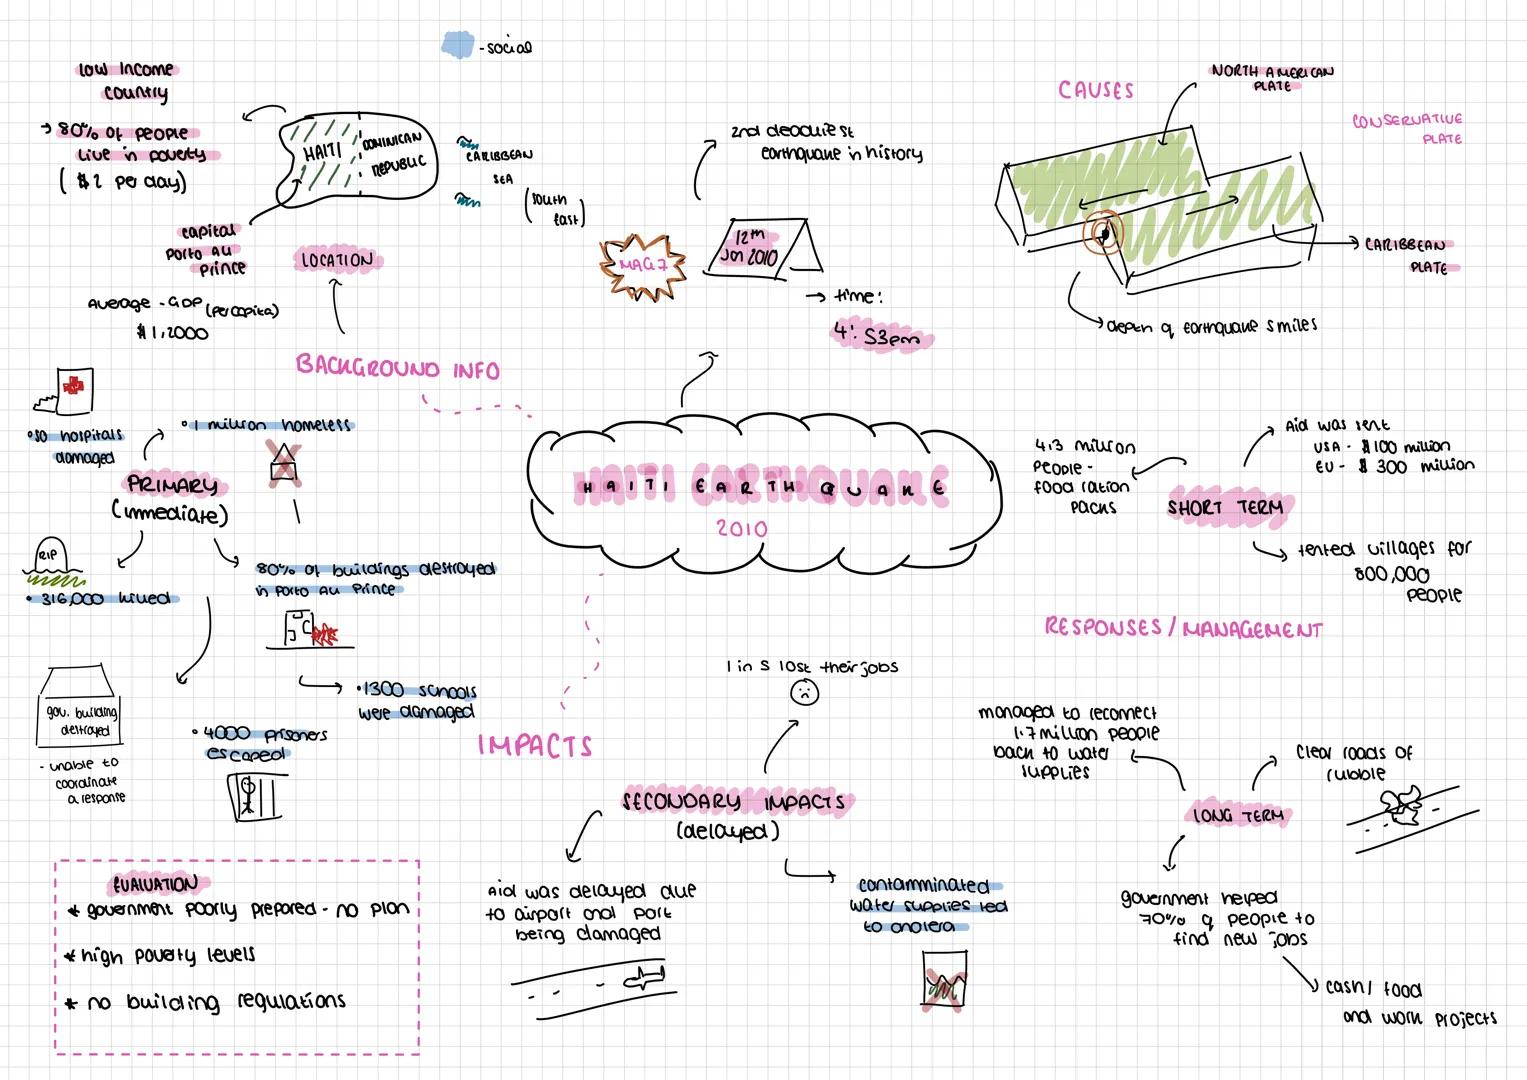 - social
LOW INCOME
COUNTRY
→ 80% of people
live in poverty
($2 per day)
HAITI
DOMINICAN
REPUBLIC
CARIBBEAN
SEA
(South
East)
capital
Porto Au
Prince
LOCATION
Average - GDP (per capita)
$1,2000
BACKGROUND INFO
2nd deadliest
earthquake in history
MAG 7
12th
Jan 2010
→ time:
4:53pm
CAUSES
NORTH AMERICAN
PLATE
CONSERVATIVE
PLATE
CARIBBEAN
PLATE
depth of earthquake 5 miles
HAITI EARTHQUAKE
HAITI EARTHQUAKE
2010
• 50 hospitals
damaged
• 1 million homeless
PRIMARY
(immediate)
RIP
• 316,000 killed
80% of buildings destroyed
in Porto Au Prince
• 1300 schools
were damaged
gov. building
destroyed
- unable to
coordinate
a response
• 4000 prisoners
escaped
IMPACTS
1 in 5 lost their jobs
SECONDARY IMPACTS
(delayed)
Aid was delayed due
to airport and port
being damaged
contamminated
water supplies led
to cholera
EVALUATION
* government poorly prepared - no plan
* high poverty levels
* no building regulations
4.3 million
people -
food ration
packs
Aid was sent
USA - $100 million
EU - $300 million
SHORT TERM
tented villages for
800,000
people
RESPONSES/MANAGEMENT
managed to reconnect
1.7 million people
back to water
supplies
Clear roads of
rubble
LONG TERM
government helped
70% of people to
find new jobs
cash/food
and work projects